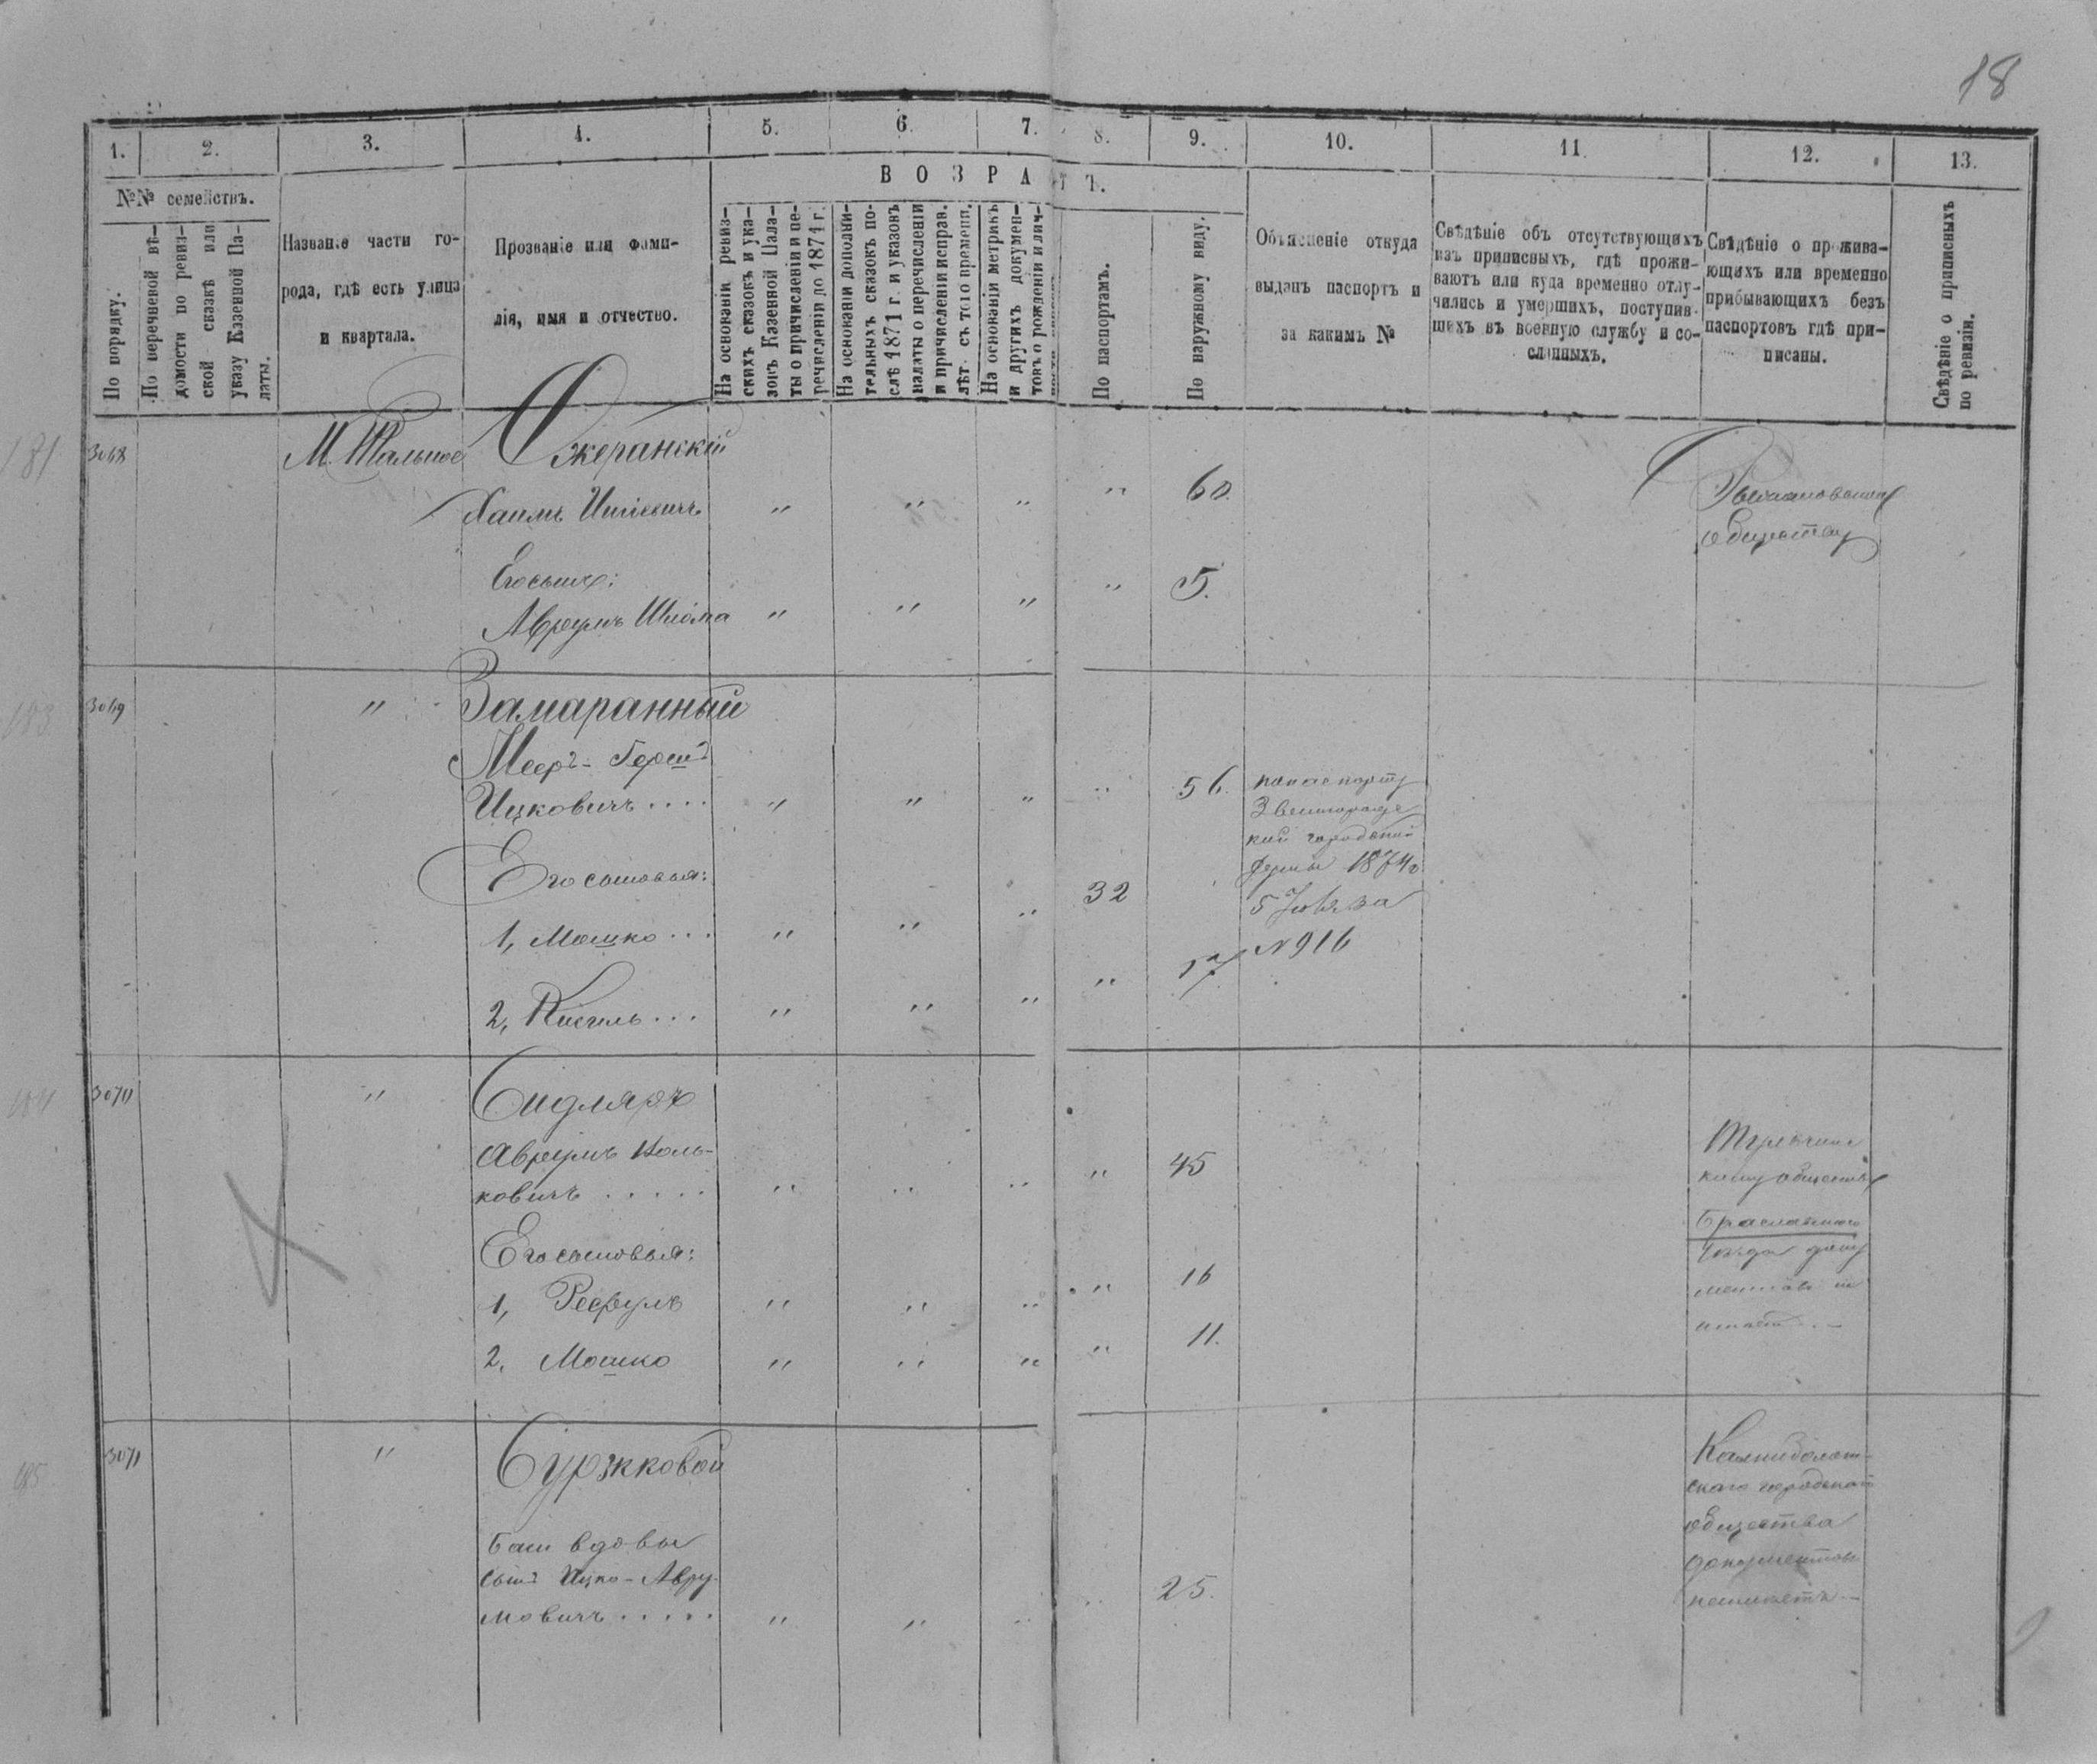 18
1. 2. 3. 4. 5. 6. 7. 8. 9. 10. 11. 12. 13.
ВОЗРАСТЪ.
№№ семействъ.
По порядку.
По перечневой вѣ-
домости по ревиз-
ской сказкѣ или
указу Казенной Па-
латы.
Названіе части го-
рода, гдѣ есть улица
и квартала.
Прозваніе или фами-
лія, имя и отчество.
На основаніи ревиз-
скихъ сказокъ и ука-
зовъ Казенной Пала-
ты о причисленіи и пе-
речисленіи до 1871 г.
На основаніи дополни-
тельныхъ сказокъ по-
слѣ 1871 г. и указовъ
палаты о перечисленіи
и причисленіи исправ.
лѣт. съ того времени.
На основаніи метрикъ
и другихъ докумен-
товъ о рожденіи и лич-
По паспортамъ.
По наружному виду.
Объясненіе откуда
выданъ паспортъ и
за какимъ №
Свѣдѣніе объ отсутствующихъ
изъ приписныхъ, гдѣ прожи-
ваютъ или куда временно отлу-
чились и умершихъ, поступив-
шихъ въ военную службу и со-
сланныхъ.
Свѣдѣніе о прожива-
ющихъ или временно
прибывающихъ безъ
паспортовъ гдѣ при-
писаны.
Свѣдѣніе о приписныхъ
по ревизіи.
181 3068 М. Тальное Ожеранскій
Хаимъ " " " " 60.
обществу
Его сынъ:
Аврумъ Шлёма " " " " 5.
183 3069 " Замаранный
Мееръ-Гершъ
Ицковичъ.... " " " " 56. по паспорту
Звенигородс
кой городской
Думы 1874 г.
5 за
№ 916
Его сыновья:
1, Мошко... " " " 32
2, Кисиль... " " " " 17
3070 " Сидляръ
Аврумъ Иось-
ковичъ..... " " " " 45
обществу
Брацлавскаго
уѣзда
Его сыновья:
1, Рефулъ " " " " 16
2, Мошко " " " " 11.
185 3071 " Буржковой
Баси вдовы
сынъ Ицко-Авру-
мовичъ..... " " " " 25.
Калниболот-
скаго городскаго
общества
документовъ
неимѣетъ.-